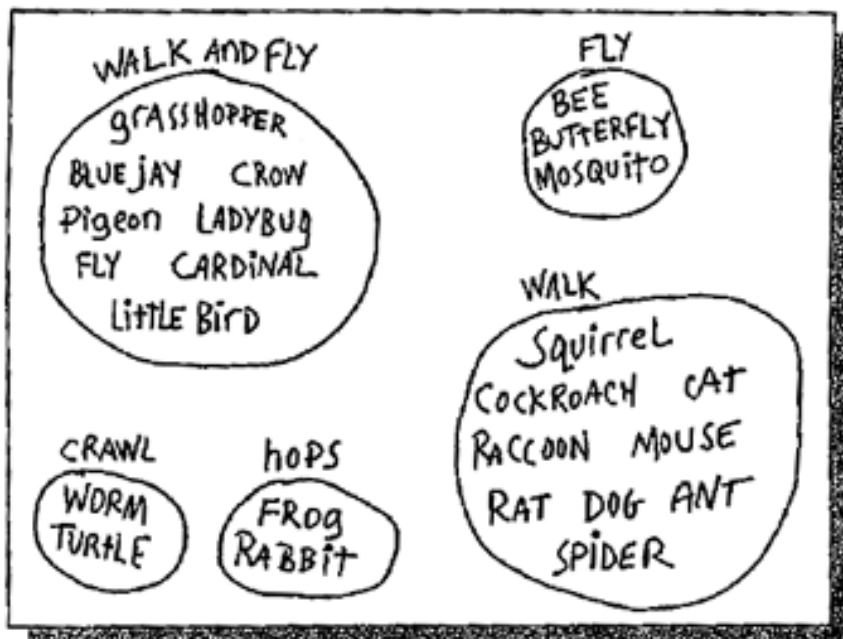 WALK AND FLY
grASSHOPPER
BLUE jAY CROW
Pigeon LADYBUg
FLY CARDiNAL
LiTTLE BirD
FLY
BEE
BUTTERFLY
MOSQUITO
WALK
SquirreL
COCKROACH CAT
RACCOON MOUSE
RAT DOG ANT
SPiDER
CRAWL
WORM
TURTLE
hOPS
FROg
RABBiT